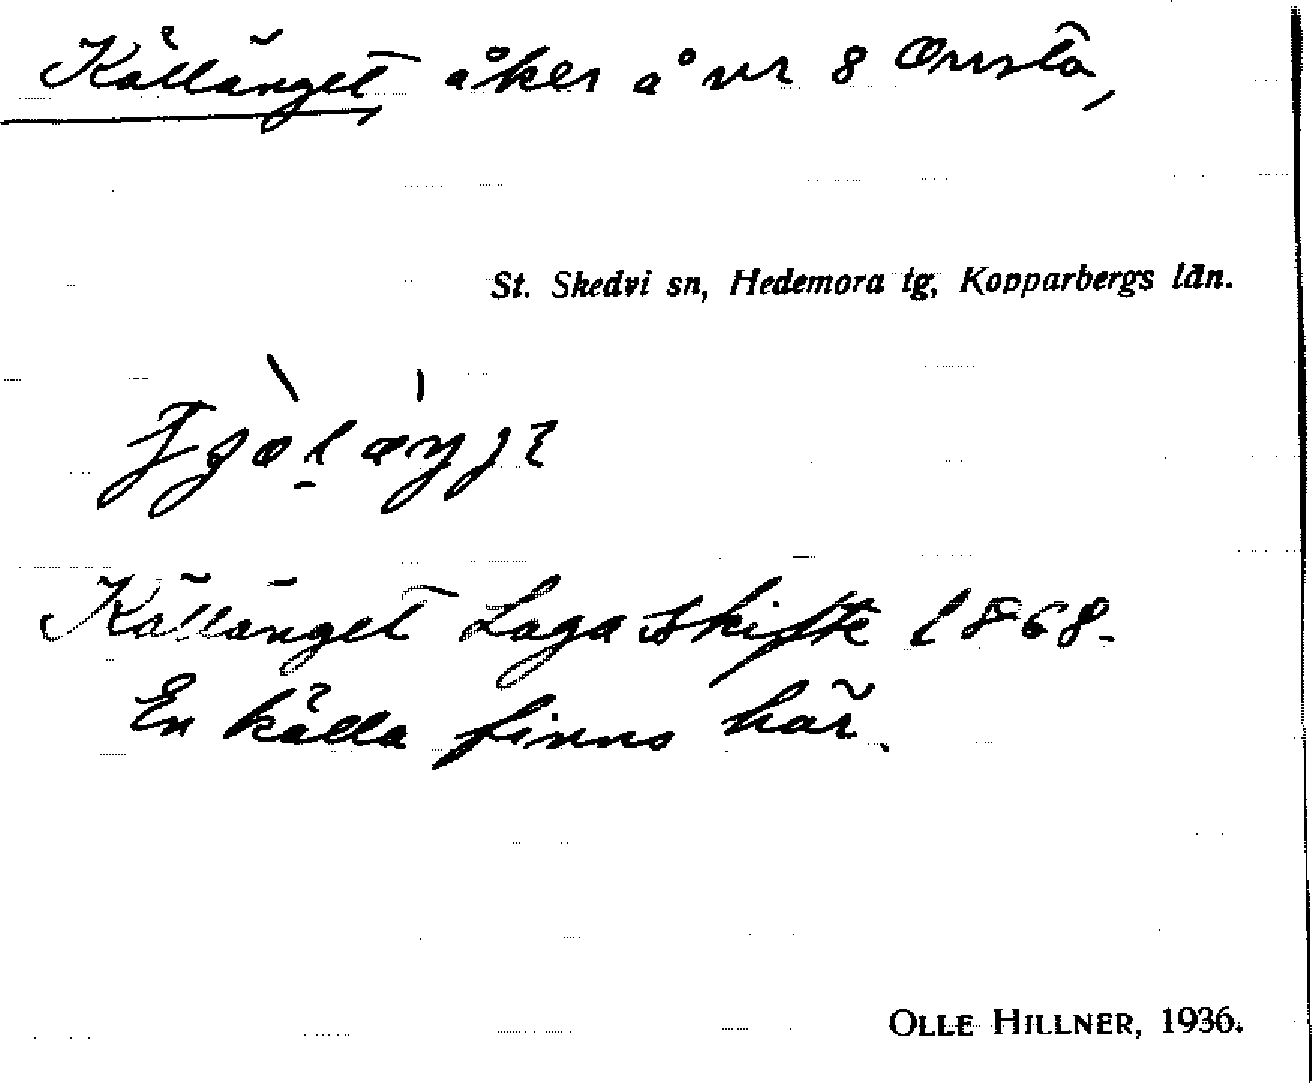 Källänget, åker å nr 8 Ornsta,
St. Skedvi sn, Hedemora tg, Kopparbergs län.
Källänget Laga skifte 1868.
En källa finns här.
OLLE HILLNER, 1936.